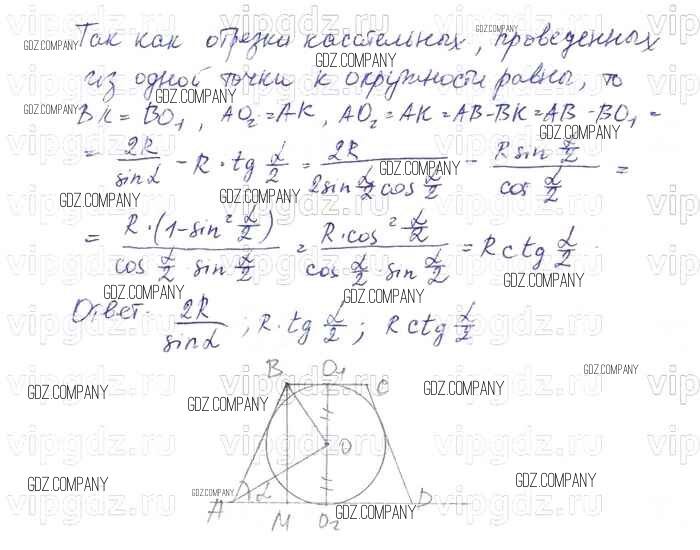 Так как отрезки касательных, проведенных
из одной точки к окружности равны, то
BK = BO₁, AO₂ = AK, AO₂ = AK = AB - BK = AB - BO₁ =
= 2R/sinα - R · tg α/2 = 2R/(2sin α/2 cos α/2) - R sin α/2 / cos α/2 =
= R · (1 - sin² α/2) / (cos α/2 · sin α/2) = R · cos² α/2 / (cos α/2 · sin α/2) = R ctg α/2
Ответ: 2R/sinα ; R · tg α/2 ; R ctg α/2
B O₁ C
O
A α M O₂ D
GDZ.COMPANY
vipgdz.ru